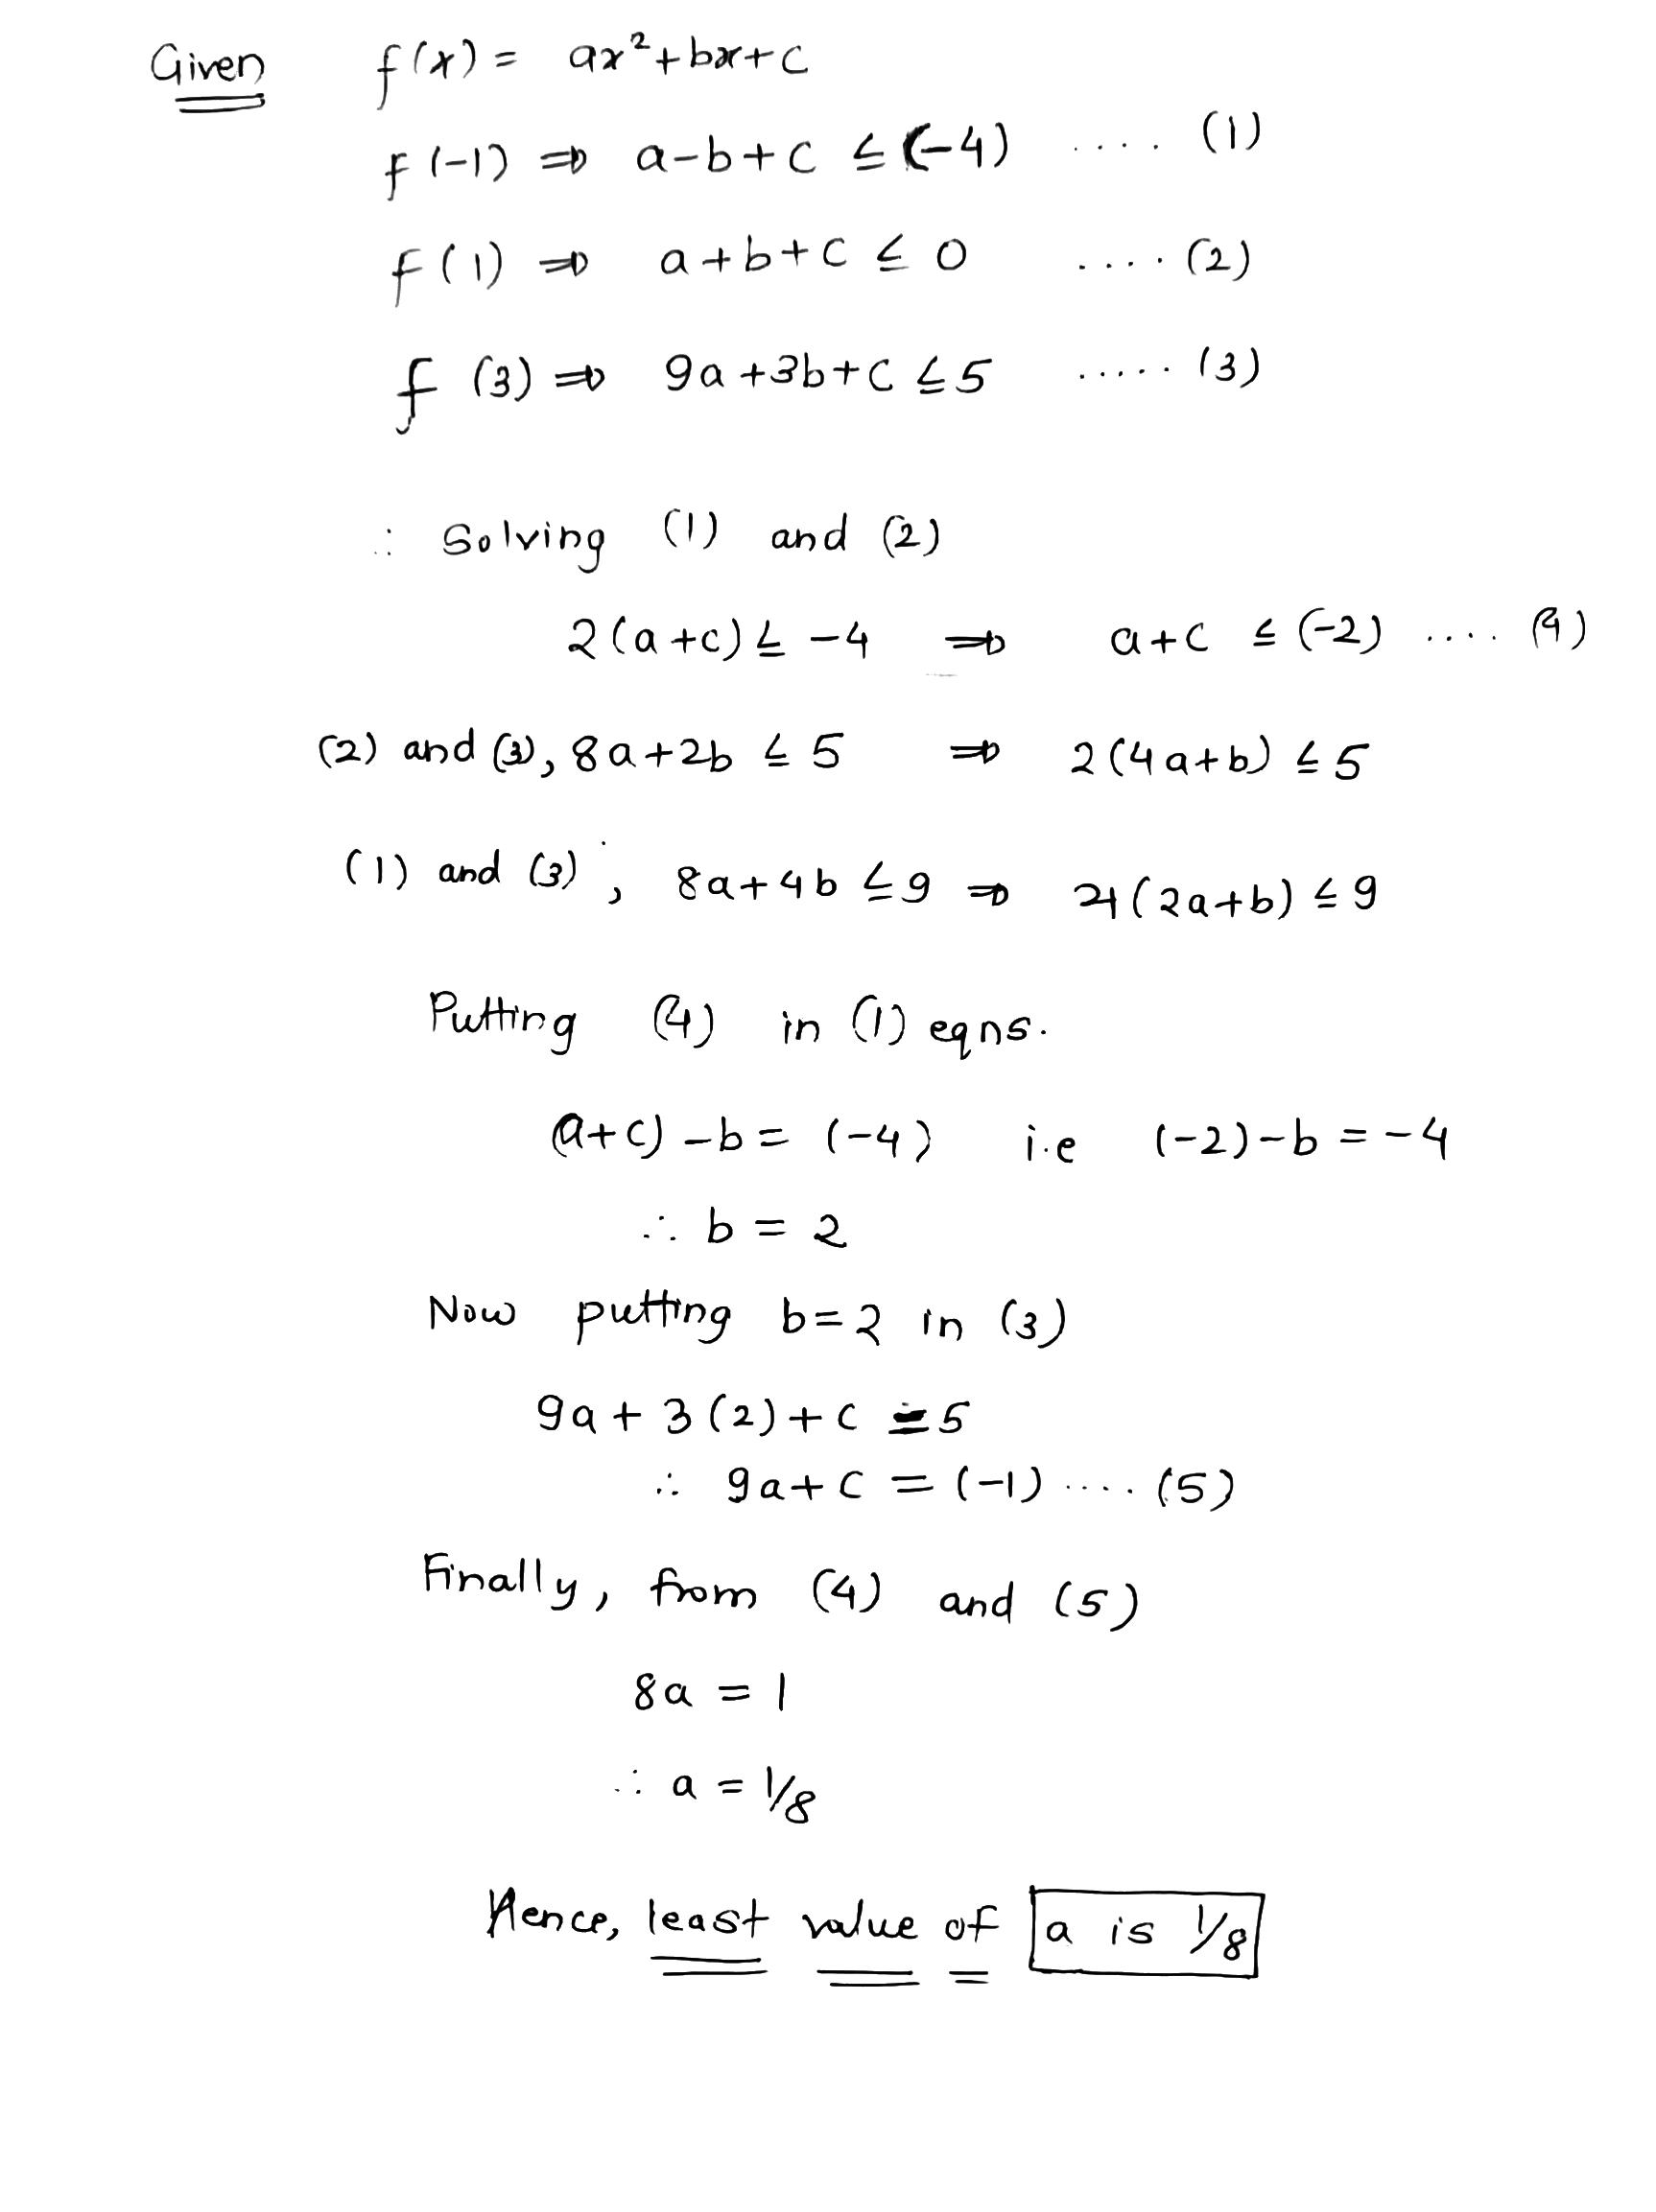 Given f(x) = ax²+bx+c
f(-1) ⇒ a-b+c ≤ (-4) .... (1)
f(1) ⇒ a+b+c ≤ 0 .... (2)
f (3) ⇒ 9a+3b+c ≤ 5 ..... (3)
∴ Solving (1) and (2)
2(a+c) ≤ -4 ⇒ a+c ≤ (-2) .... (4)
(2) and (3), 8a+2b ≤ 5 ⇒ 2(4a+b) ≤ 5
(1) and (3), 8a+4b ≤ 9 ⇒ 4(2a+b) ≤ 9
Putting (4) in (1) eqns.
(a+c) -b = (-4) i.e (-2)-b = -4
∴ b = 2
Now putting b=2 in (3)
9a + 3(2)+c = 5
∴ 9a+c = (-1) .... (5)
Finally, from (4) and (5)
8a = 1
∴ a = 1/8
Hence, least value of a is 1/8